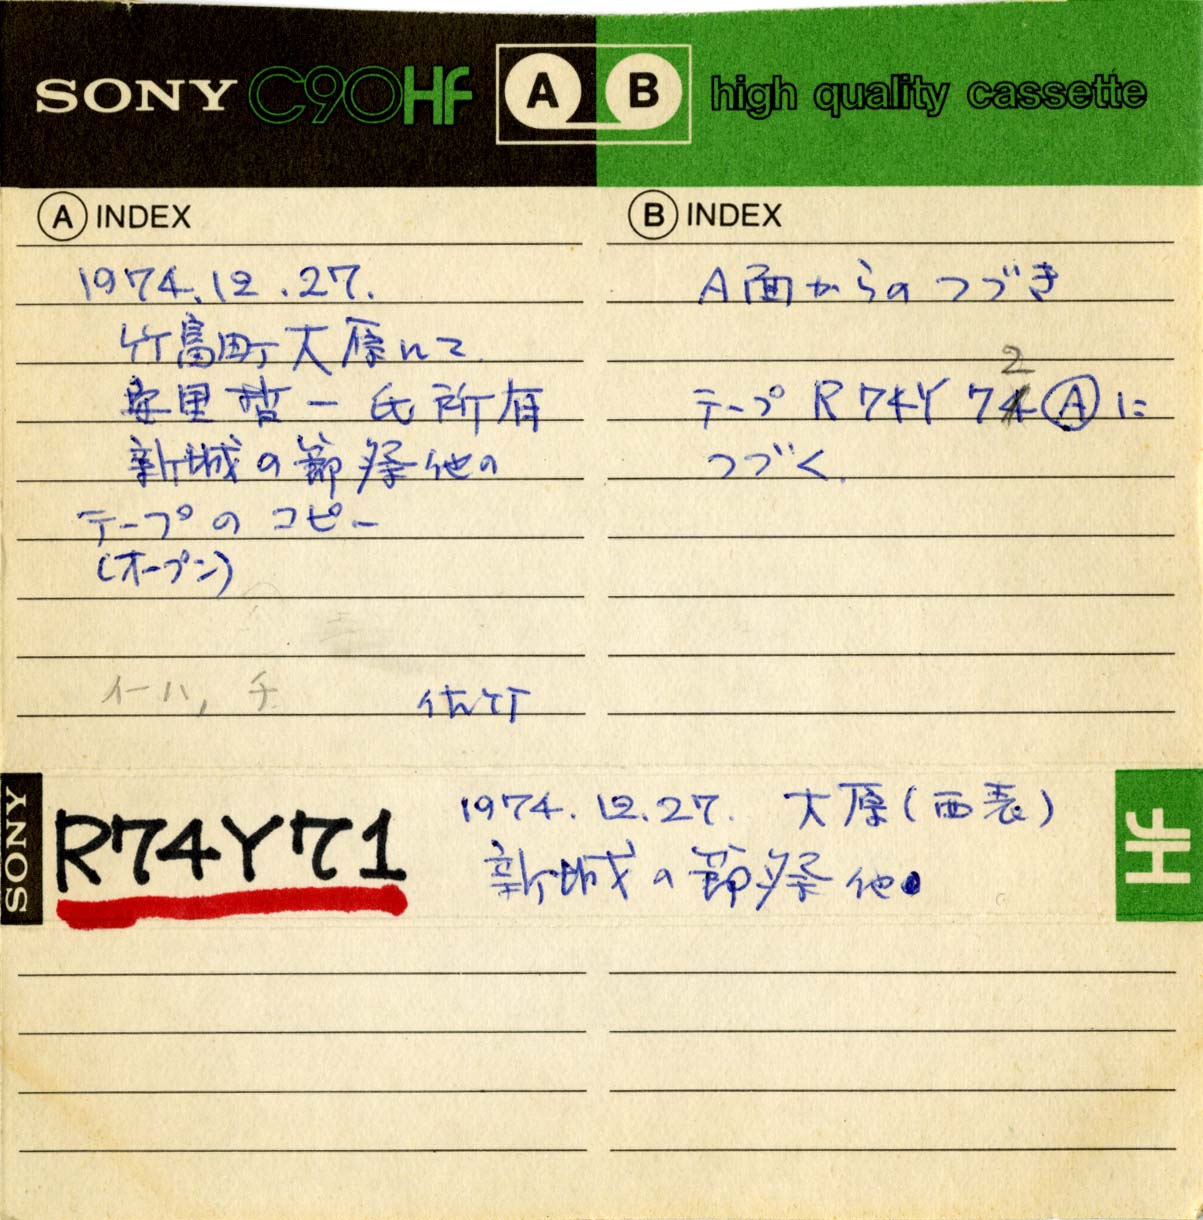 SONY C90Hf A B high quality cassette
A INDEX
1974.12.27.
竹富町大原にて
安里哲一氏所有
新城の節祭他の
テープのコピー
(オープン)
イーハ, チ 佐竹
B INDEX
A面からのつづき
2
テープ R74Y 7 Ⓐに
つづく.
SONY
R74Y71
1974.12.27. 大原(西表)
新城の節祭他
Hf